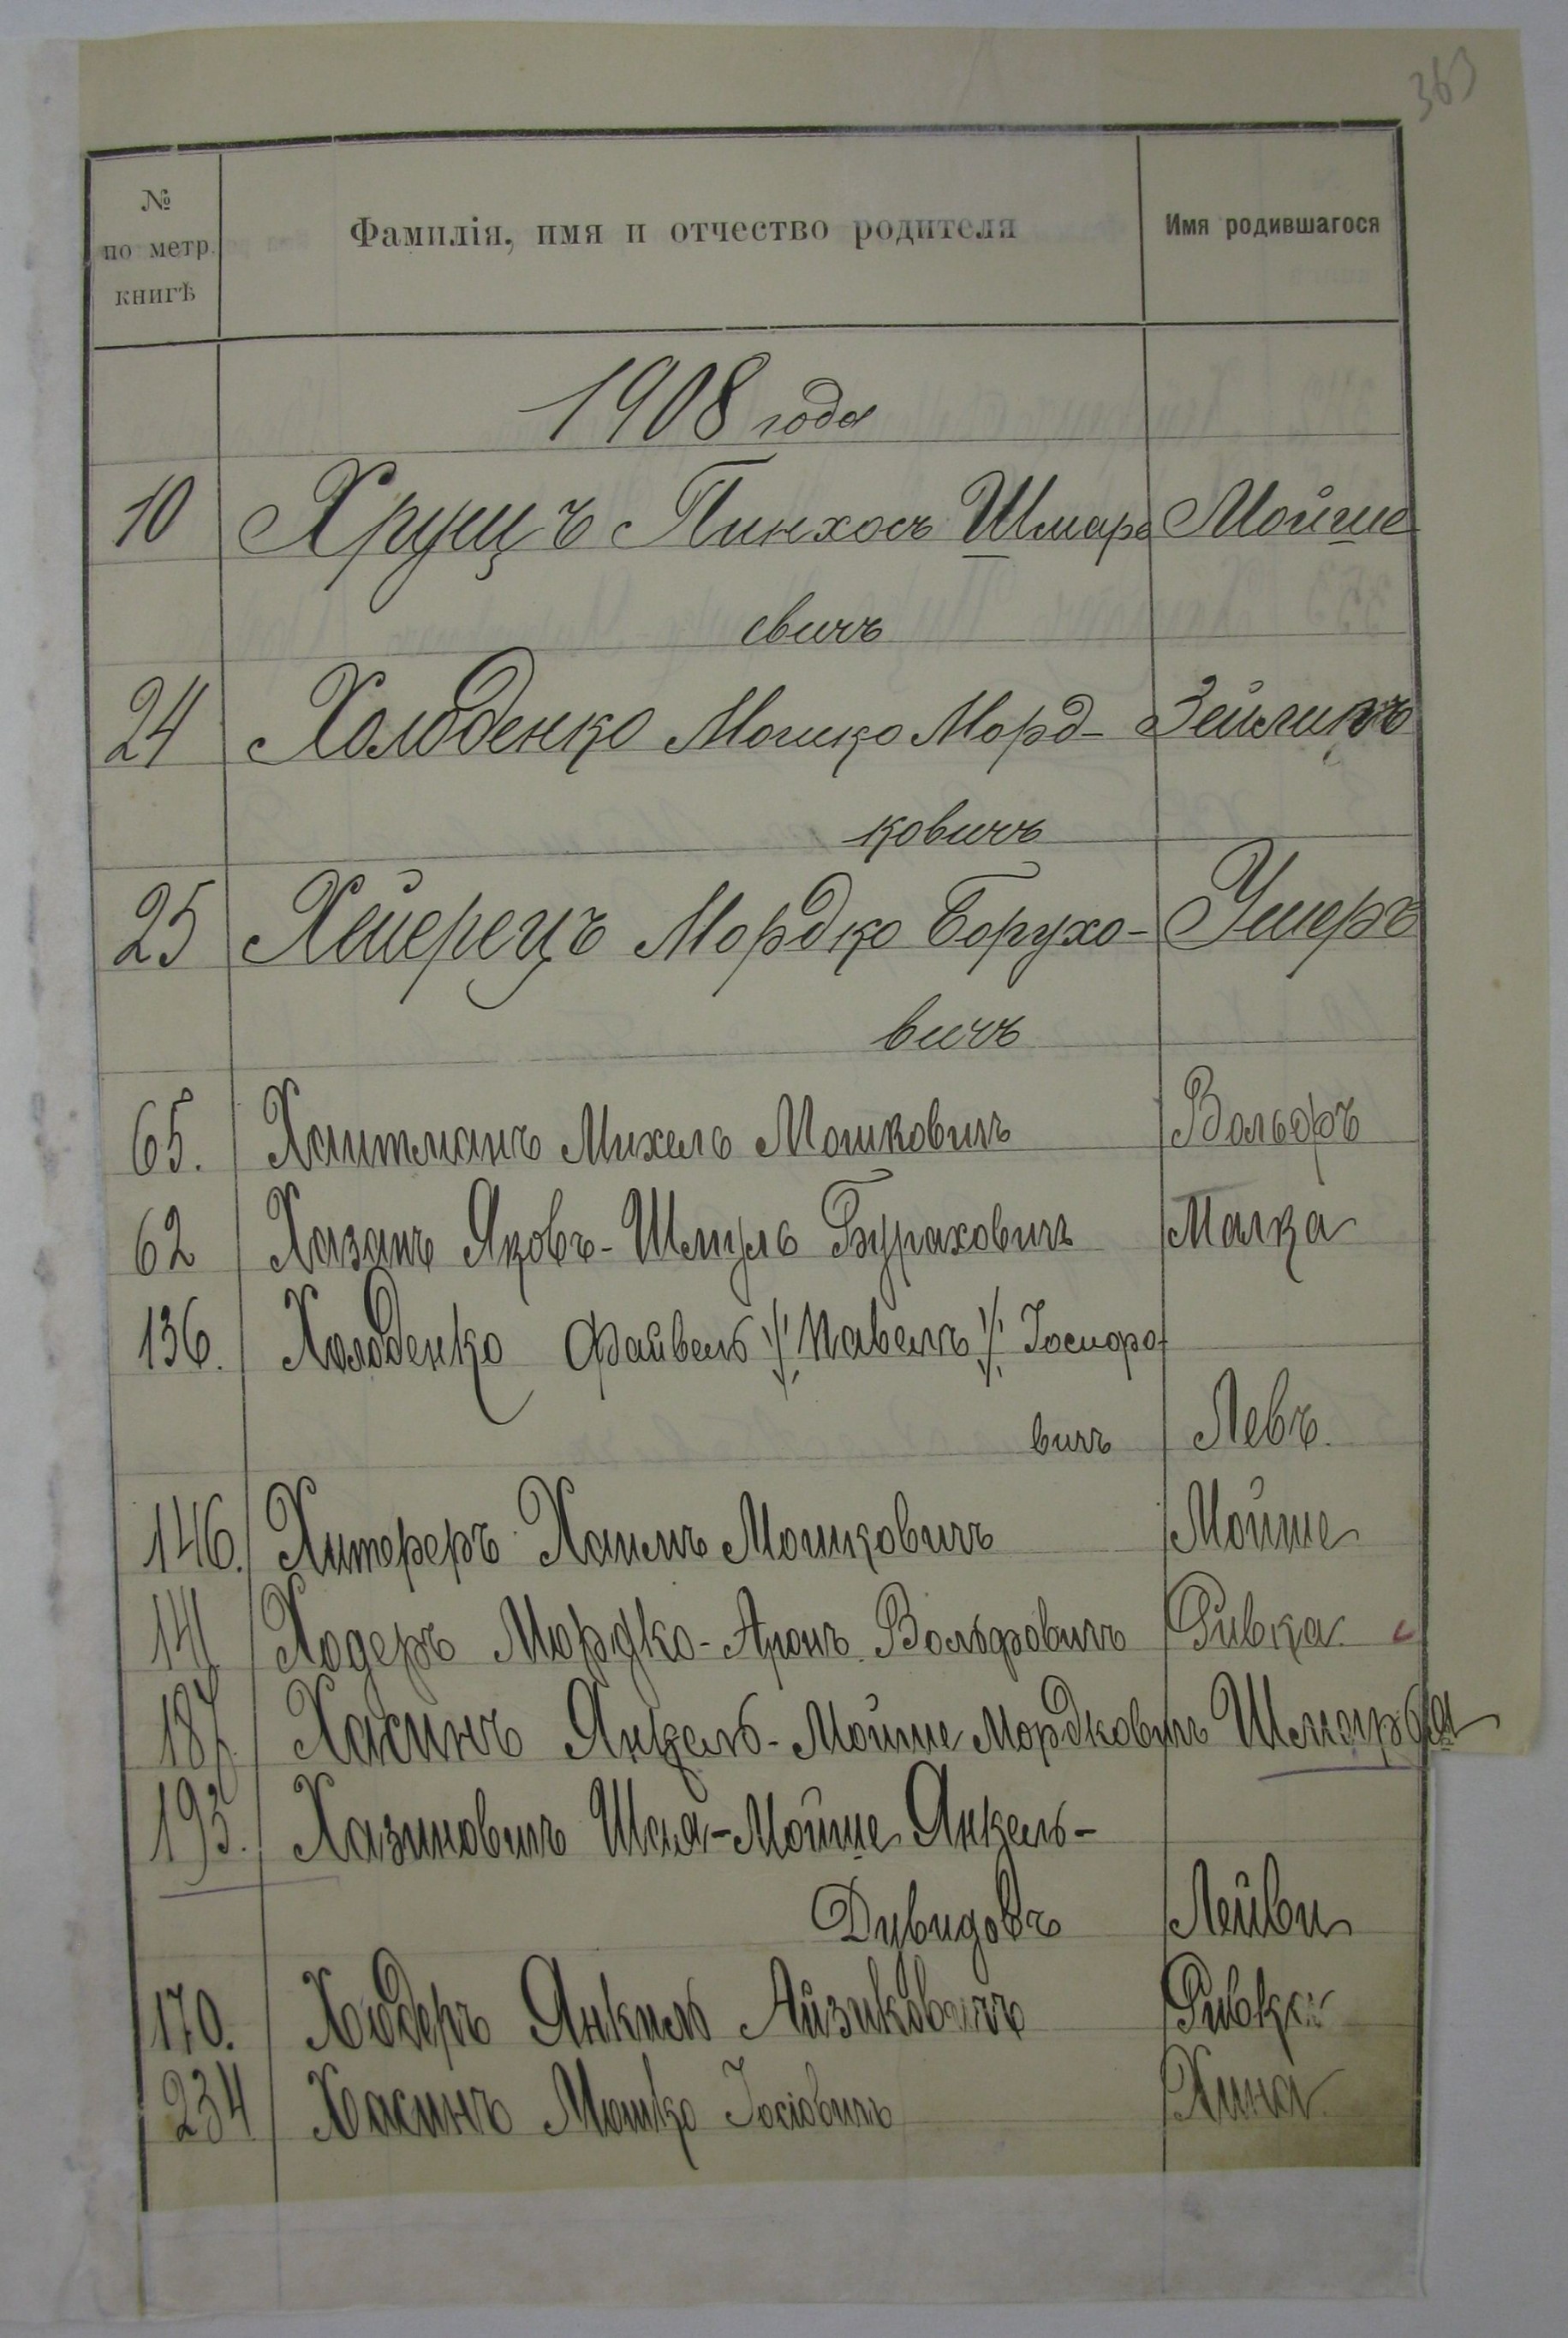 363
№ по метр. книгѣ Фамилія, имя и отчество родителя Имя родившагося
1908 года
10 Хрущъ Пинхосъ Шмаре Мойше
евичъ
24 Холоденко Мошко Морд- Зейликъ
ковичъ
25 Хейерецъ Мордко Борухо- Ушеръ
вичъ
65. Хаитманъ Михель Мошковичъ Вольфъ
62 Хазанъ Яковъ-Шмуль Бураховичъ Малка
136. Холоденко Файвель /Павелъ/ Іосифо-
вичъ Левъ.
146. Хитереръ Хаимъ Мошковичъ Мойше
141 Ходеръ Мордко-Аронъ Вольфовичъ Ривка
187. Хасинъ Янкель-Мойше Мордковичъ Шмарья
193. Хазиновичъ Шая-Мойше Янкель-
Дувидовъ Лейви
170. Ходеръ Янкиль Айзиковичъ Ривка
234 Хасинъ Мошко Іосіовичъ Хина